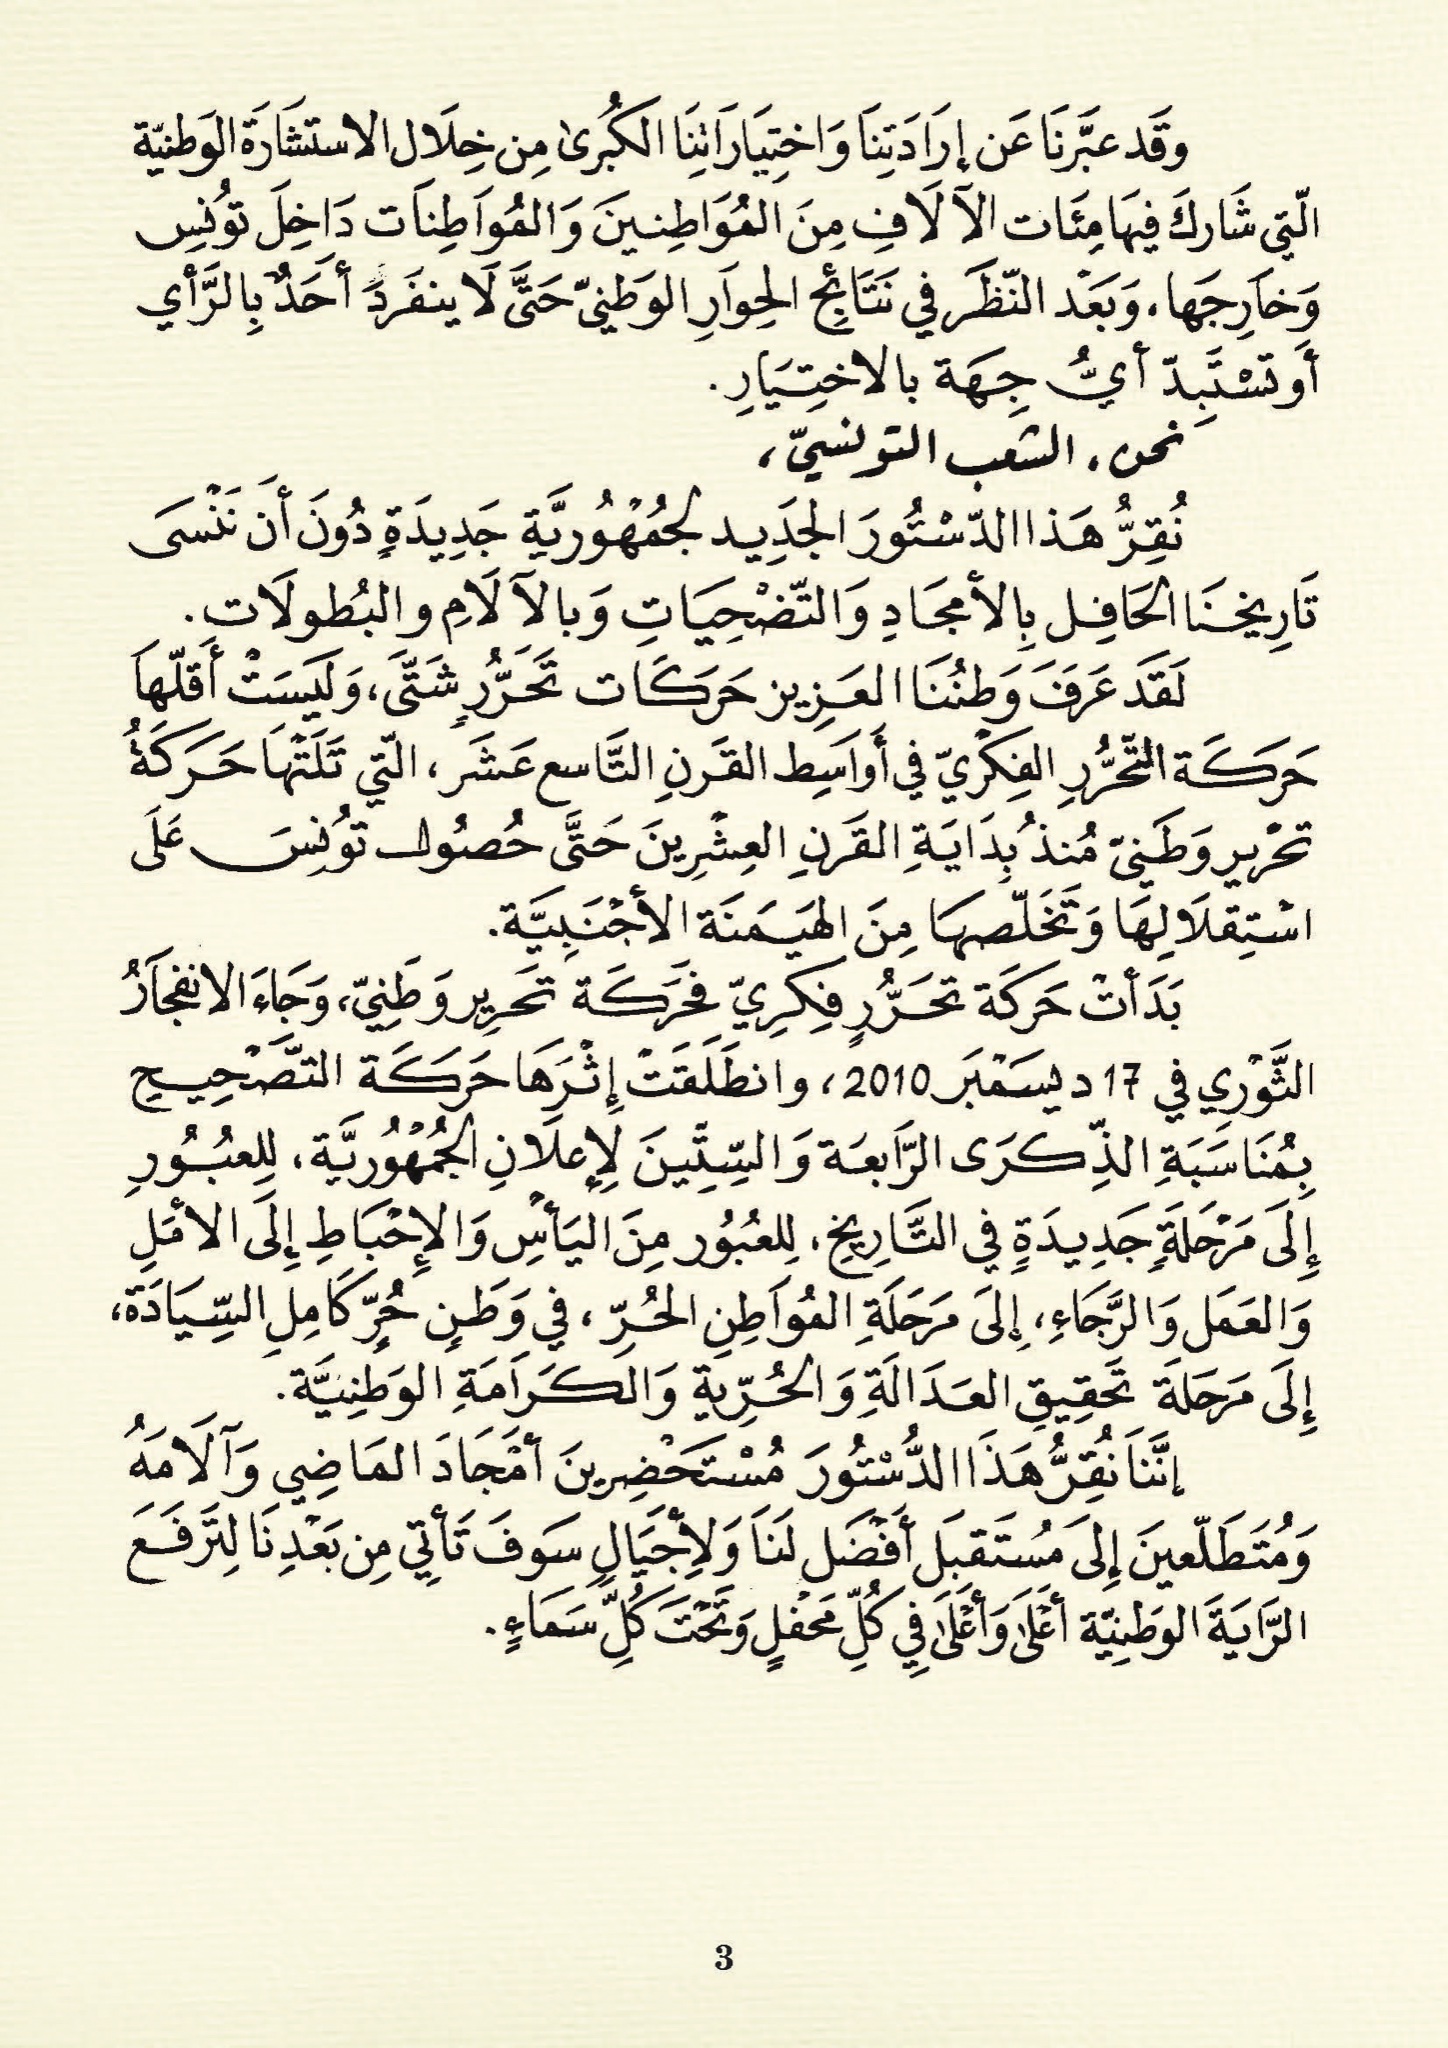 وقَد عبَّرنَا عَن إرَادَتِنَا وَاختِيَارَاتِنَا الكُبرىٰ مِن خِلَال الاستشَارَة الوَطنيّة
الّتِي شَاركَ فِيهَا مِئَات الآلَافِ مِنَ المُوَاطِنينَ وَالمُواَطِنَات دَاخِلَ تُونِس
وَخاَرِجَها، وَبَعْد النّظَر في نَتَائِجِ الحِوَارِ الوَطنيّ حَتَّى لَا ينفَرِدَ أحَدٌ بِالرَّأي
أَو تَسْتَبِدّ أيُّ جِهَة بالاختِيَارِ.
نحن، الشعب التونسيّ،
نُقِرُّ هَذا الدّسْتُورَ الجَدِيد لجُمْهُوريَّةِ جَدِيدَةٍ دُونَ أَن نَنْسَى
تَارِيخنَا الحَافِل بِالأمجَادِ وَالتّضْحِيَاتِ وَبالآلَامِ والبُطولَات.
لَقَد عَرَفَ وَطنُنَا العَزِيز حَرَكَات تَحَرُّرٍ شَتَّى، وَلَيسَتْ أَقلّهاَ
حَرَكَة التّحَرُّرِ الفِكْريّ في أَوَاسِط القَرنِ التَّاسع عَشَر، الّتي تَلَتْهَا حَرَكَةُ
تحْرير وَطَنيّ مُنذُ بِدَايَةِ القَرنِ العِشْرِينَ حَتَّى حُصُول تُونِسَ عَلَى
اسْتِقلَالِهَا وَتَخَلّصهَا مِنَ الهَيمَنَة الأجْنَبِيَّة.
بَدَأتْ حَركَة تحَرُّرٍ فِكرِيّ فحَركَة تَحرِير وَطَنِيّ، وَجَاءَ الانفجَارُ
الثَّوْرِي في 17 ديسَمْبَر 2010، وانطَلَقَتْ إِثْرَهَا حَرَكَة التَّصْحِيحِ
بِمُنَاسَبَةِ الذِّكرَى الرَّابعَة وَالسِّتِّينَ لِإعلَانِ الجُمْهُوريَّة، لِلعبُورِ
إِلَى مَرْحَلَةٍ جَدِيدَةٍ في التَّارِيخِ، لِلعُبُور مِنَ اليَأسِ وَالإِحْبَاطِ إِلَى الأمَلِ
وَالعَمَل وَالرَّجَاءِ، إِلَى مَرحَلَةِ المُواَطِنِ الحُرِّ، في وَطَنٍ حُرٍّ كَامِلِ السِّيَادَة،
إِلَى مَرحَلَة تَحقِيقِ العَدَالَةِ وَالحُرِّيةِ وَالكَرَامَةِ الوَطنِيَّة.
إنَّنَا نُقِرُّ هَذَا الدُّسْتُورَ مُسْتَحْضِرينَ أمْجَادَ المَاضِي وَآلَامَهُ
وَمُتَطَلّعينَ إِلَى مُسْتَقبَل أَفْضَل لنَا وَلأِجْيَالٍ سَوفَ تَأتِي مِن بَعْدِنَا لِتَرفَعَ
الرَّايَةَ الوَطنِيّة أعْلَى وَأَعْلَى فِي كُلِّ مَحْفلٍ وَتَحْتَ كُلِّ سَمَاءٍ.
3